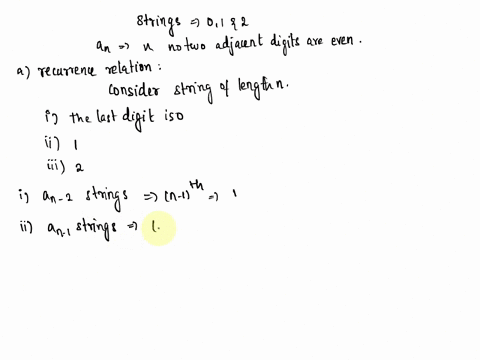 strings => 0, 1 & 2
an => n no two adjacent digits are even.
a) recurrence relation :
Consider string of length n.
i) the last digit is 0
ii) 1
iii) 2
i) an-2 strings => (n-1)th => 1
ii) an-1 strings => (.